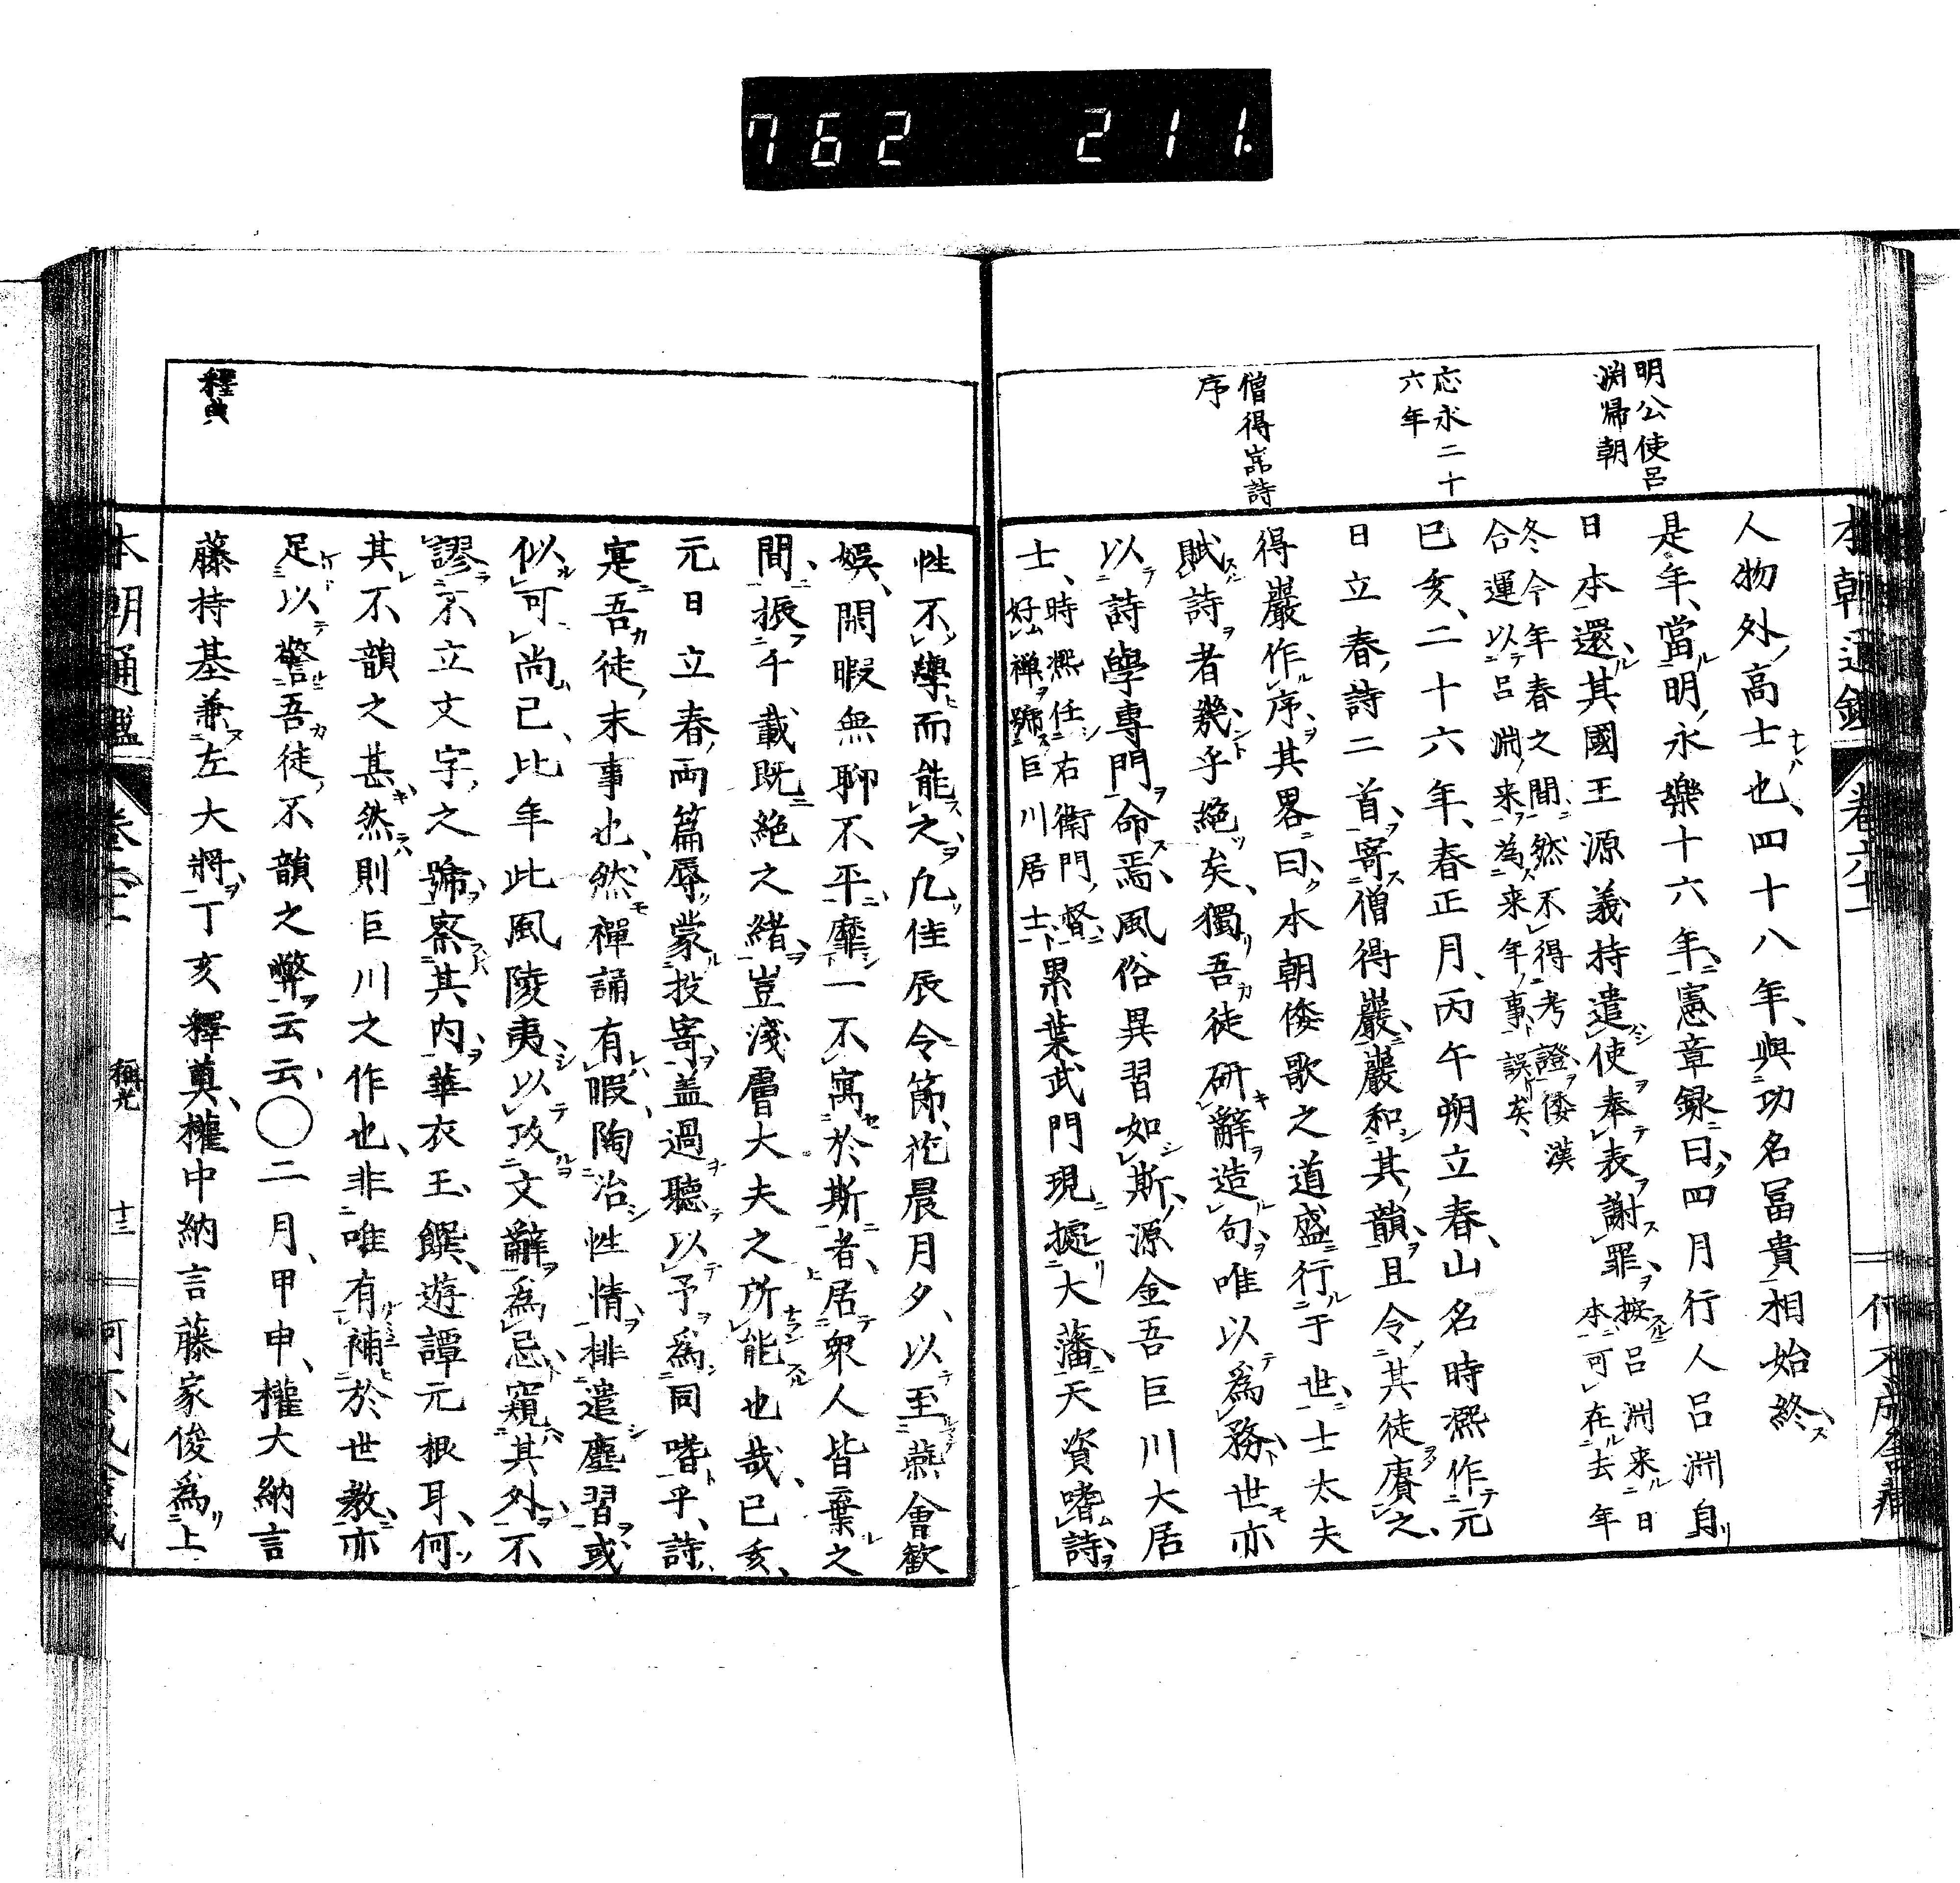 762 211.
本朝通鑑 卷六十一
明公使呂
淵帰朝
応永二十
六年
僧得嵓詩
序
人物外高士也、四十八年、與功名冨貴相始終
是年、當明永樂十六年、憲章録曰、四月行人呂淵自
日本還、其國王源義持遣使奉表謝罪、按呂淵来日
本可在去年
冬今年春之間、然不得考證、倭漢
合運以呂淵来為来年事誤矣、
已亥、二十六年、春正月、丙午朔立春、山名時凞作元
日立春詩二首、寄僧得巖、巖和其韻、且令其徒賡之、
得巖作序、其畧曰、本朝倭歌之道盛行于世、士太夫
賦詩者幾乎絕矣、獨吾徒研辭造句、唯以為務、世亦
以詩學專門命焉、風俗異習如斯、源金吾巨川大居
士、時凞任右衛門督、
好禅號巨川居士、累葉武門現據大藩、天資嗜詩、
性不學而能之、凢佳辰令節、花晨月夕、以至燕會歡
娯、閑暇無聊不平、靡一不寓於斯者、居衆人皆棄之
間、振千載既絶之緒、豈淺膚大夫之所能也哉、已亥、
元日立春両篇辱蒙投寄、盖過聽以予為同嗜乎、詩、
寔吾徒末事也、然禪誦有暇、陶冶性情、排遣塵習、或
似可尚已、比年此風陵夷、以攻文辭為忌、窺其外、不
謬不立文字之號、察其内、華衣玉饌、遊譚元根耳、何
其不韻之甚、然則巨川之作也、非唯有補於世教、亦
足以警吾徒不韻之弊云云、〇二月、甲申、權大納言
藤持基兼左大將、丁亥釋奠、權中納言藤家俊為上
釋奠
本朝通鑑 卷六十一 稱光 十三